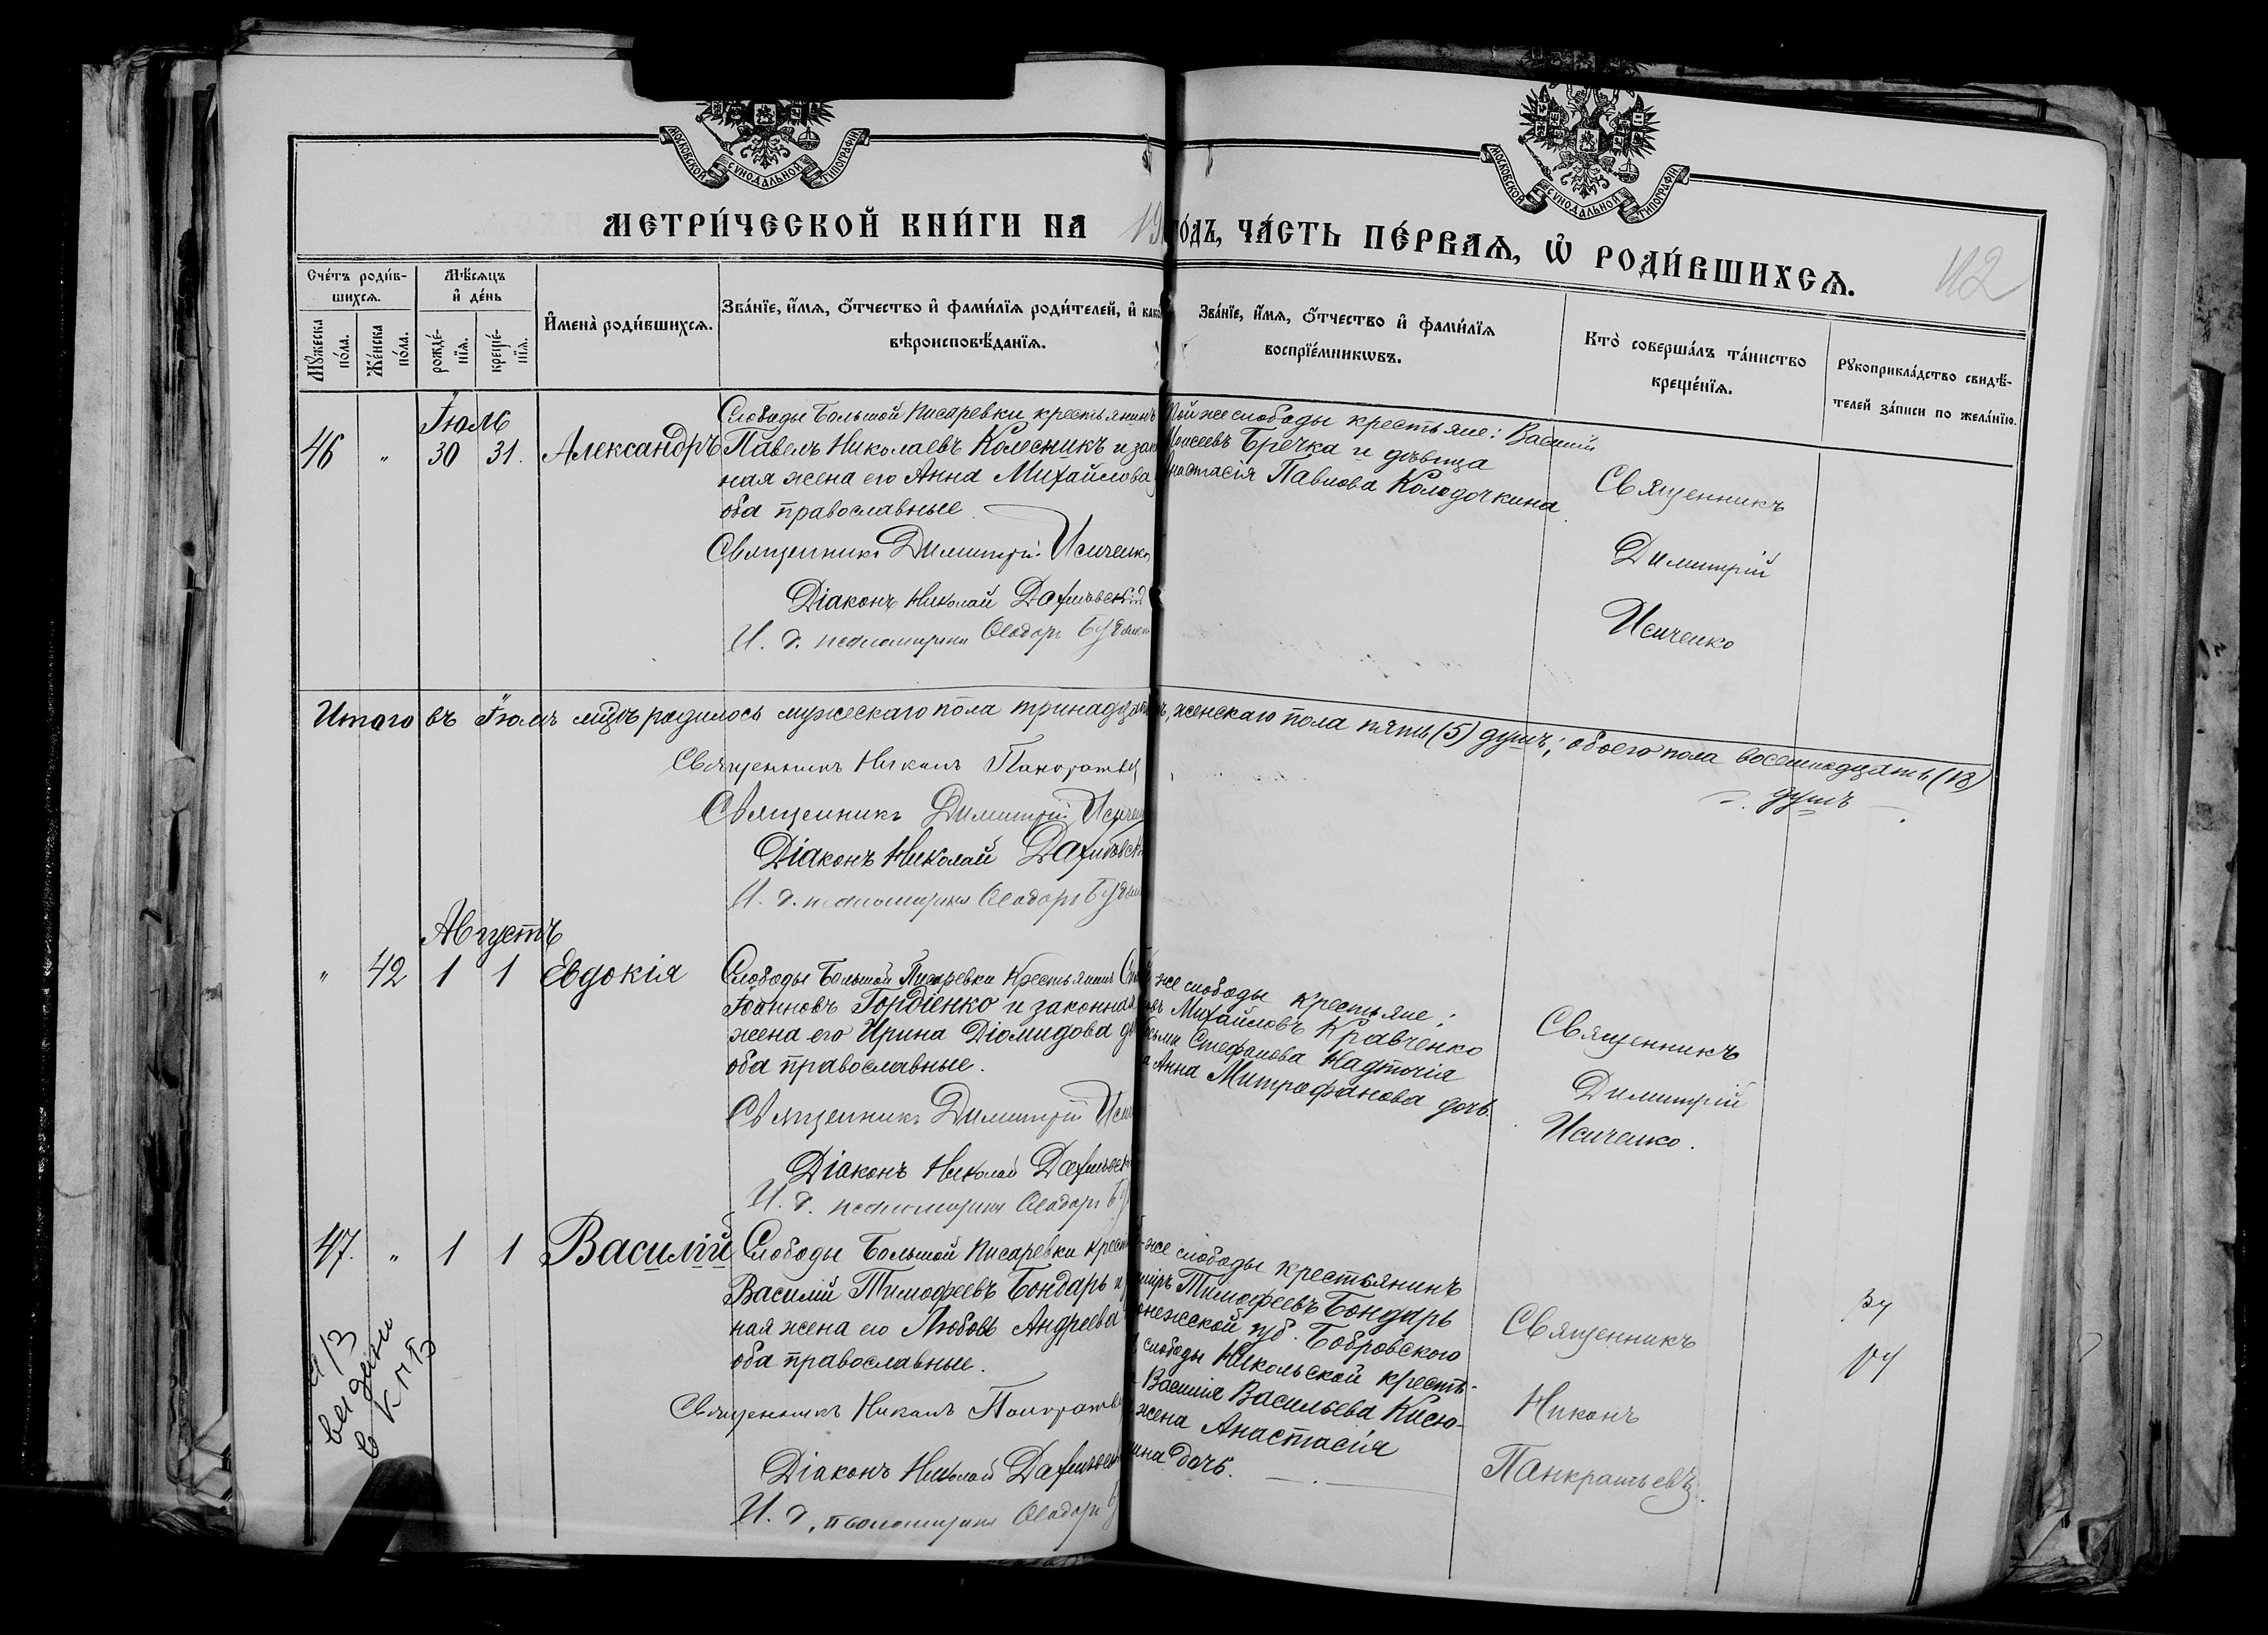 МОСКОВСКОЙ СѴНОДАЛЬНОЙ ТИПОГРАФІИ
МОСКОВСКОЙ СѴНОДАЛЬНОЙ ТИПОГРАФІИ
МЕТРИ́ЧЕСКОЙ КНИ́ГИ НА 19
ГО́ДЪ, ЧА́СТЬ ПЕ́РВАѦ, Ѡ҆ РОДИ́ВШИХСѦ.
112
Сче́тъ роди́в-
шихсѧ.
Мꙋ́жеска
по́ла.
Же́нска
по́ла.
Мѣ́сѧцъ
и҆ де́нь
рожде́-
нїѧ.
креще́-
нїѧ.
И҆мена̀ роди́вшихсѧ.
Зва́нїе, и҆́мѧ, ѻ҆́тчество и҆ фами́лїѧ роди́телей, и҆ како
вѣроисповѣ́данїѧ.
Зва́нїе, и҆́мѧ, ѻ҆́тчество и҆ фами́лїѧ
воспрїе́мникѡвъ.
Кто̀ соверша́лъ та́инство
креще́нїѧ.
Рꙋкоприкла́дство свидѣ́-
телей за́писи по жела́нїю.
Іюль
46 " 30 31. Александръ
Слободы Большой Писаревки крестьянинъ
Павелъ Николаевъ Колесникъ и зак
ная жена его Анна Михайлова
оба православные
Священникъ Димитрій Исиченко
Діаконъ Николай
И. д. псаломщика Ѳеодоръ
Той же слободы крестьяне: Василій
Моисеевъ Бречка и дѣвица
Анастасія Павлова Колодочкина
Священникъ
Димитрій
Исиченко
Итого въ Іюлѣ мцѣ родилось мужескаго пола тринадцать, женскаго пола пять (5) душъ; обоего пола восемнадцать (18)
душъ
Священникъ Никонъ Панкратьев
Священникъ Димитрій Исичен
Діаконъ Николай
И. д. псаломщика Ѳеодоръ
Августъ
" 42 1 1 Евдокія
Слободы Большой Писаревки Крестьянинъ
Іоанновъ Гордіенко и законная
жена его Ирина Діомидова
оба православные.
Священникъ Димитрій Иси
Діаконъ Николай
И. д. псаломщика Ѳеодоръ
же слободы крестьяне:
Михайловъ Кравченко
Стефанова Надточія
Анна Митрофанова дочь.
Священникъ
Димитрій
Исиченко.
47. " 1 1 Василій
Слободы Большой Писаревки крест
Василій Тимофеевъ Бондарь и
ная жена его Любовь Андреева
оба православные.
Священникъ Никонъ Панкратьев
Діаконъ Николай
И. д. псаломщика Ѳеодоръ
же слободы крестьянинъ
Тимофеевъ Бондарь
онежской губ. Бобровского
слободы Никольской кресть-
Василія Васильева Кисю-
жена Анастасія
ина дочь.
Священникъ
Никонъ
Панкратьевъ.